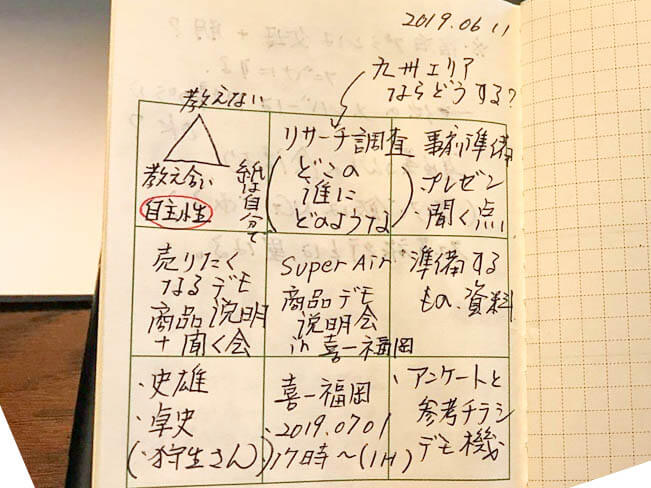 2019.06.11
九州エリア
ならどうする?
教えない
教え合い
自主性
紙は自分で
リサーチ調査
(どこの
誰に
どのような)
事前準備
・プレゼン
・聞く点
売りたく
なるデモ
商品説明
+聞く会
Super Air
商品デモ
説明会
in 喜一福岡
準備する
もの、資料
・史雄
・卓史
(・狩生さん)
喜一福岡
・2019.07.01
・17時〜(1H)
・アンケートと
参考チラシ
デモ機